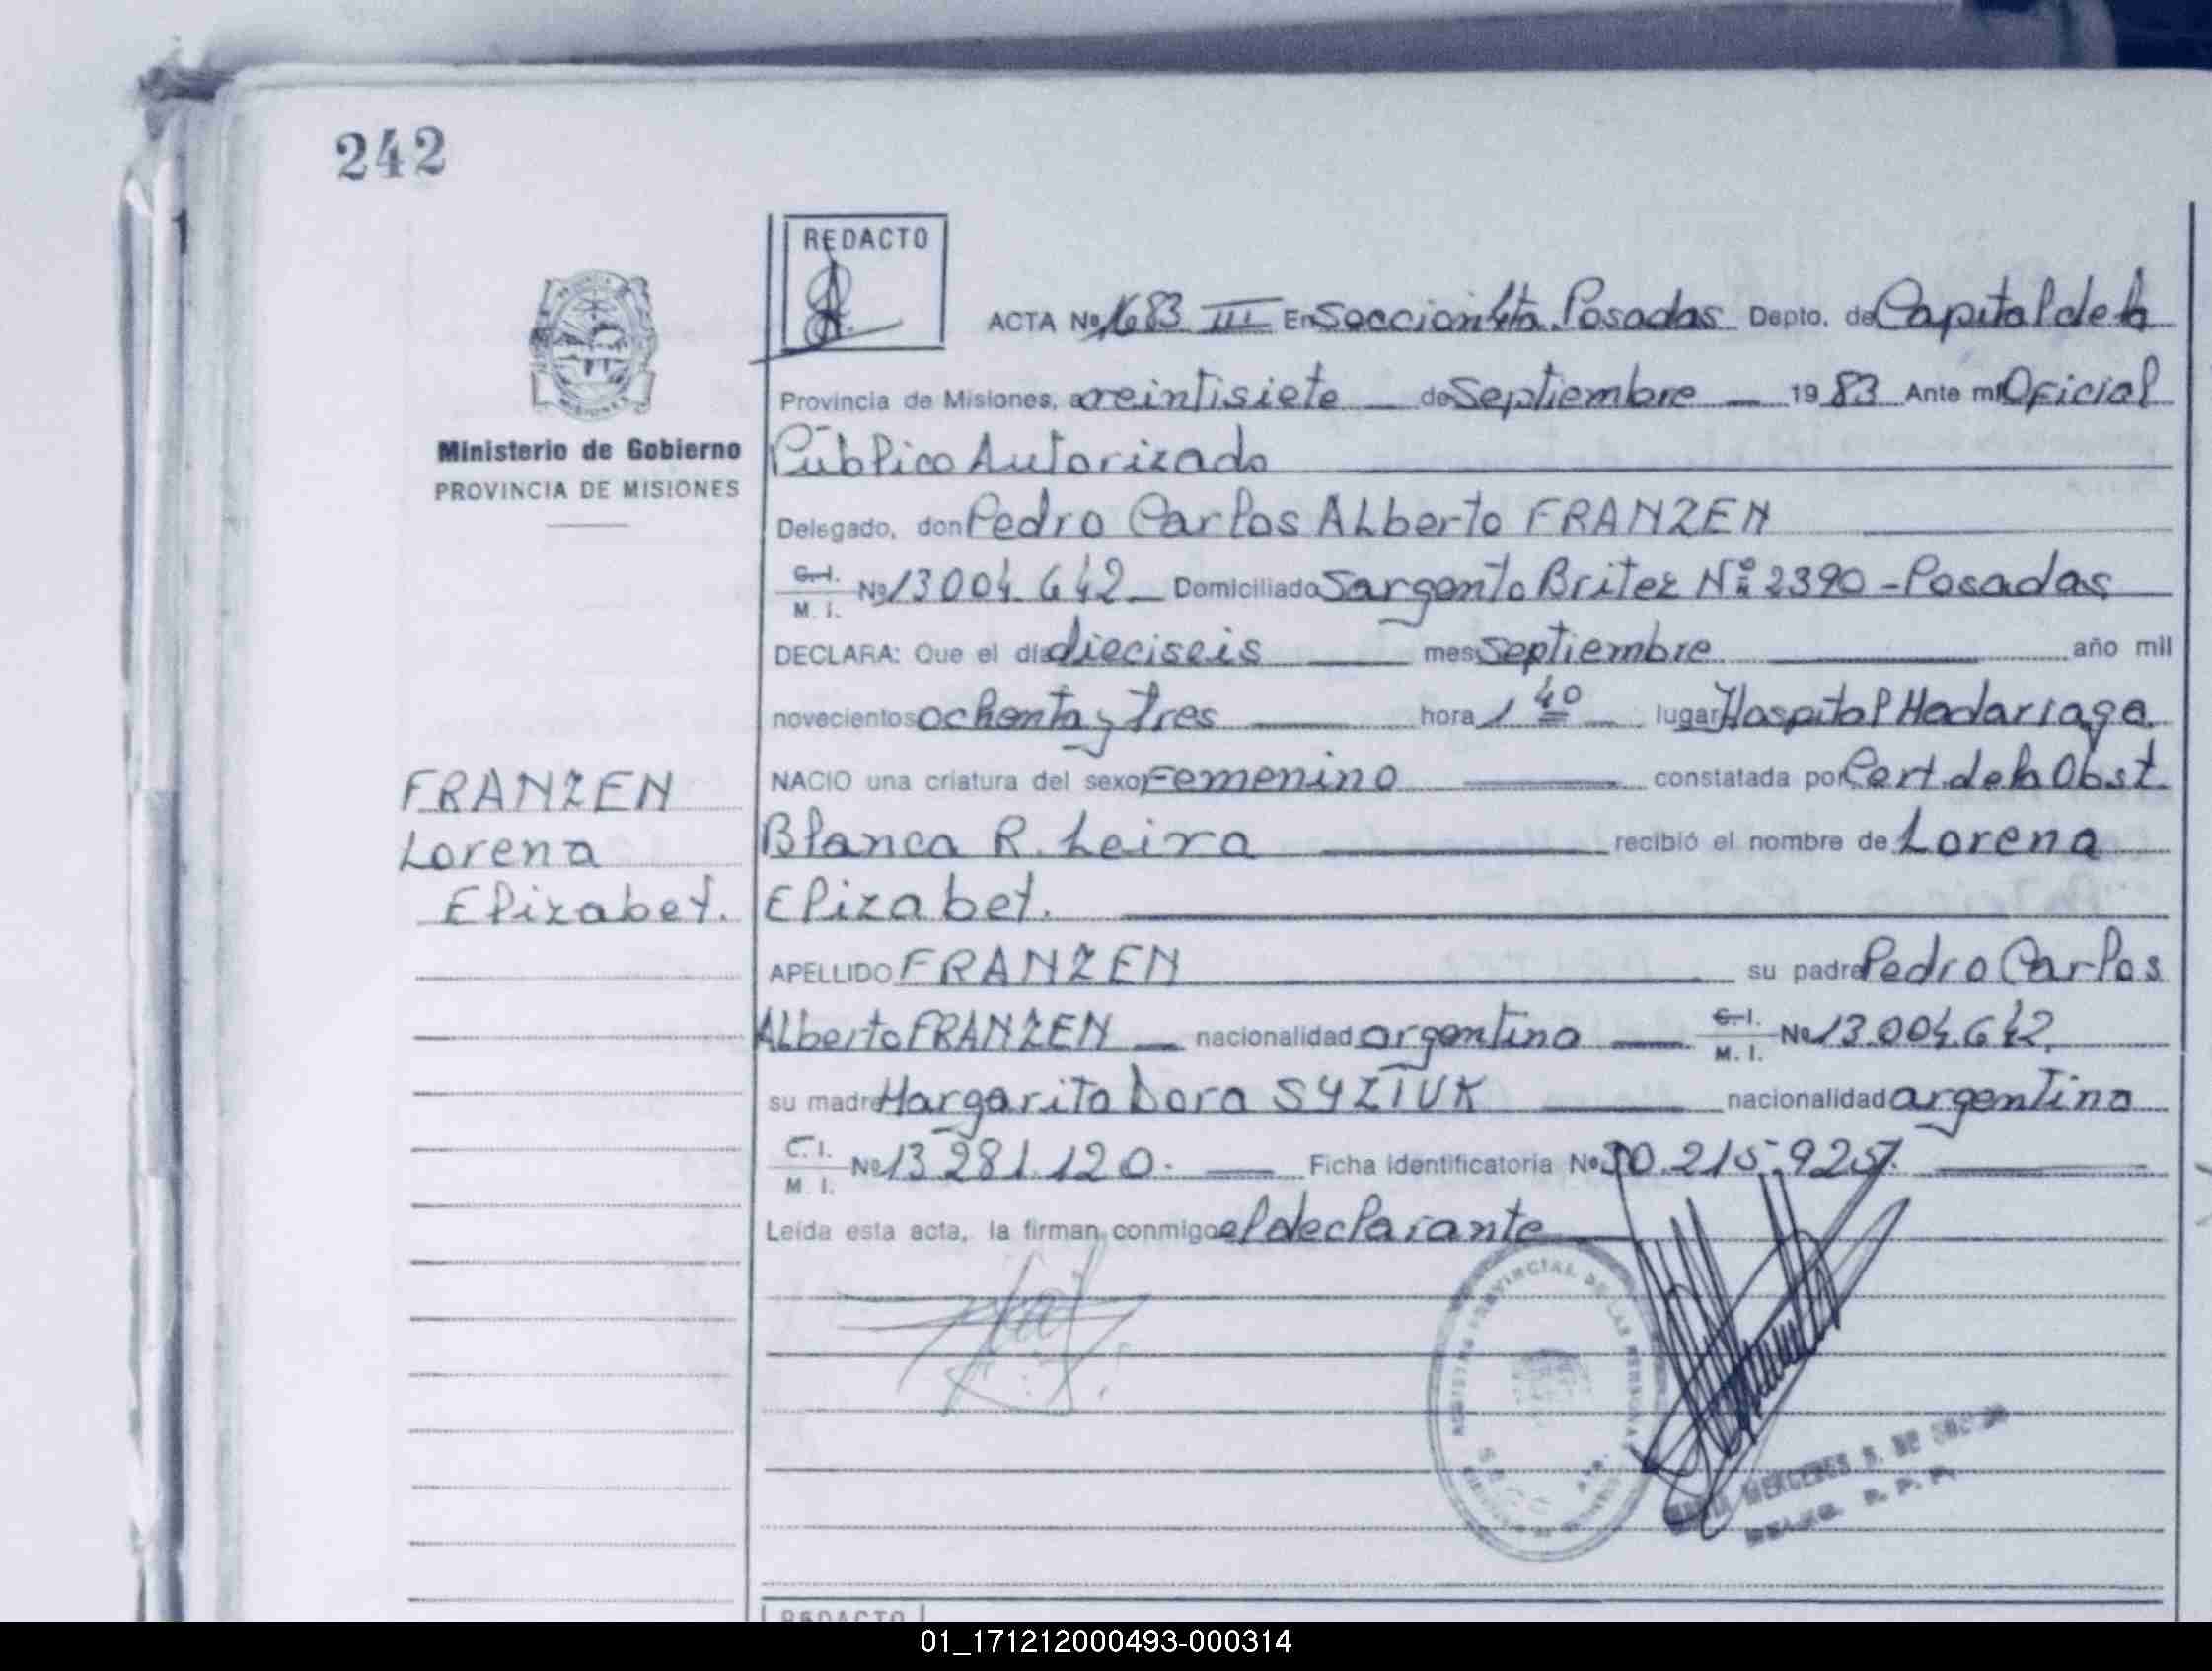 242
REDACTO
ACTA Nº 1683 III En Seccion 4ta. Posadas Depto. de Capital de la
Provincia de Misiones, a veintisiete de Septiembre 1983 Ante mi Oficial
Ministerio de Gobierno
Público Autorizado
PROVINCIA DE MISIONES
Delegado, don Pedro Carlos Alberto FRANZEN
C.I. M. I. Nº 13004.642 Domiciliado Sargento Britez Nº 2390 - Posadas
DECLARA: Que el día dieciseis mes Septiembre año mil
novecientos ochenta y tres hora 1 40 lugar Hospital Madariaga
FRANZEN
NACIO una criatura del sexo Femenino constatada por Cert. de la Obst.
Lorena
Blanca R. Leiva recibió el nombre de Lorena
Elizabet.
Elizabet.
APELLIDO FRANZEN su padre Pedro Carlos
Alberto FRANZEN nacionalidad argentina C.I. M. I. Nº 13.004.642,
su madre Margarita Dora SYZIUK nacionalidad argentina
C.I. M. I. Nº 13.281.120. Ficha identificatoria Nº 30.215.925.
Leída esta acta, la firman conmigo el declarante
REGISTRO PROVINCIAL DE LAS PERSONAS
MERCEDES S. DE
REDACTO
01_171212000493-000314